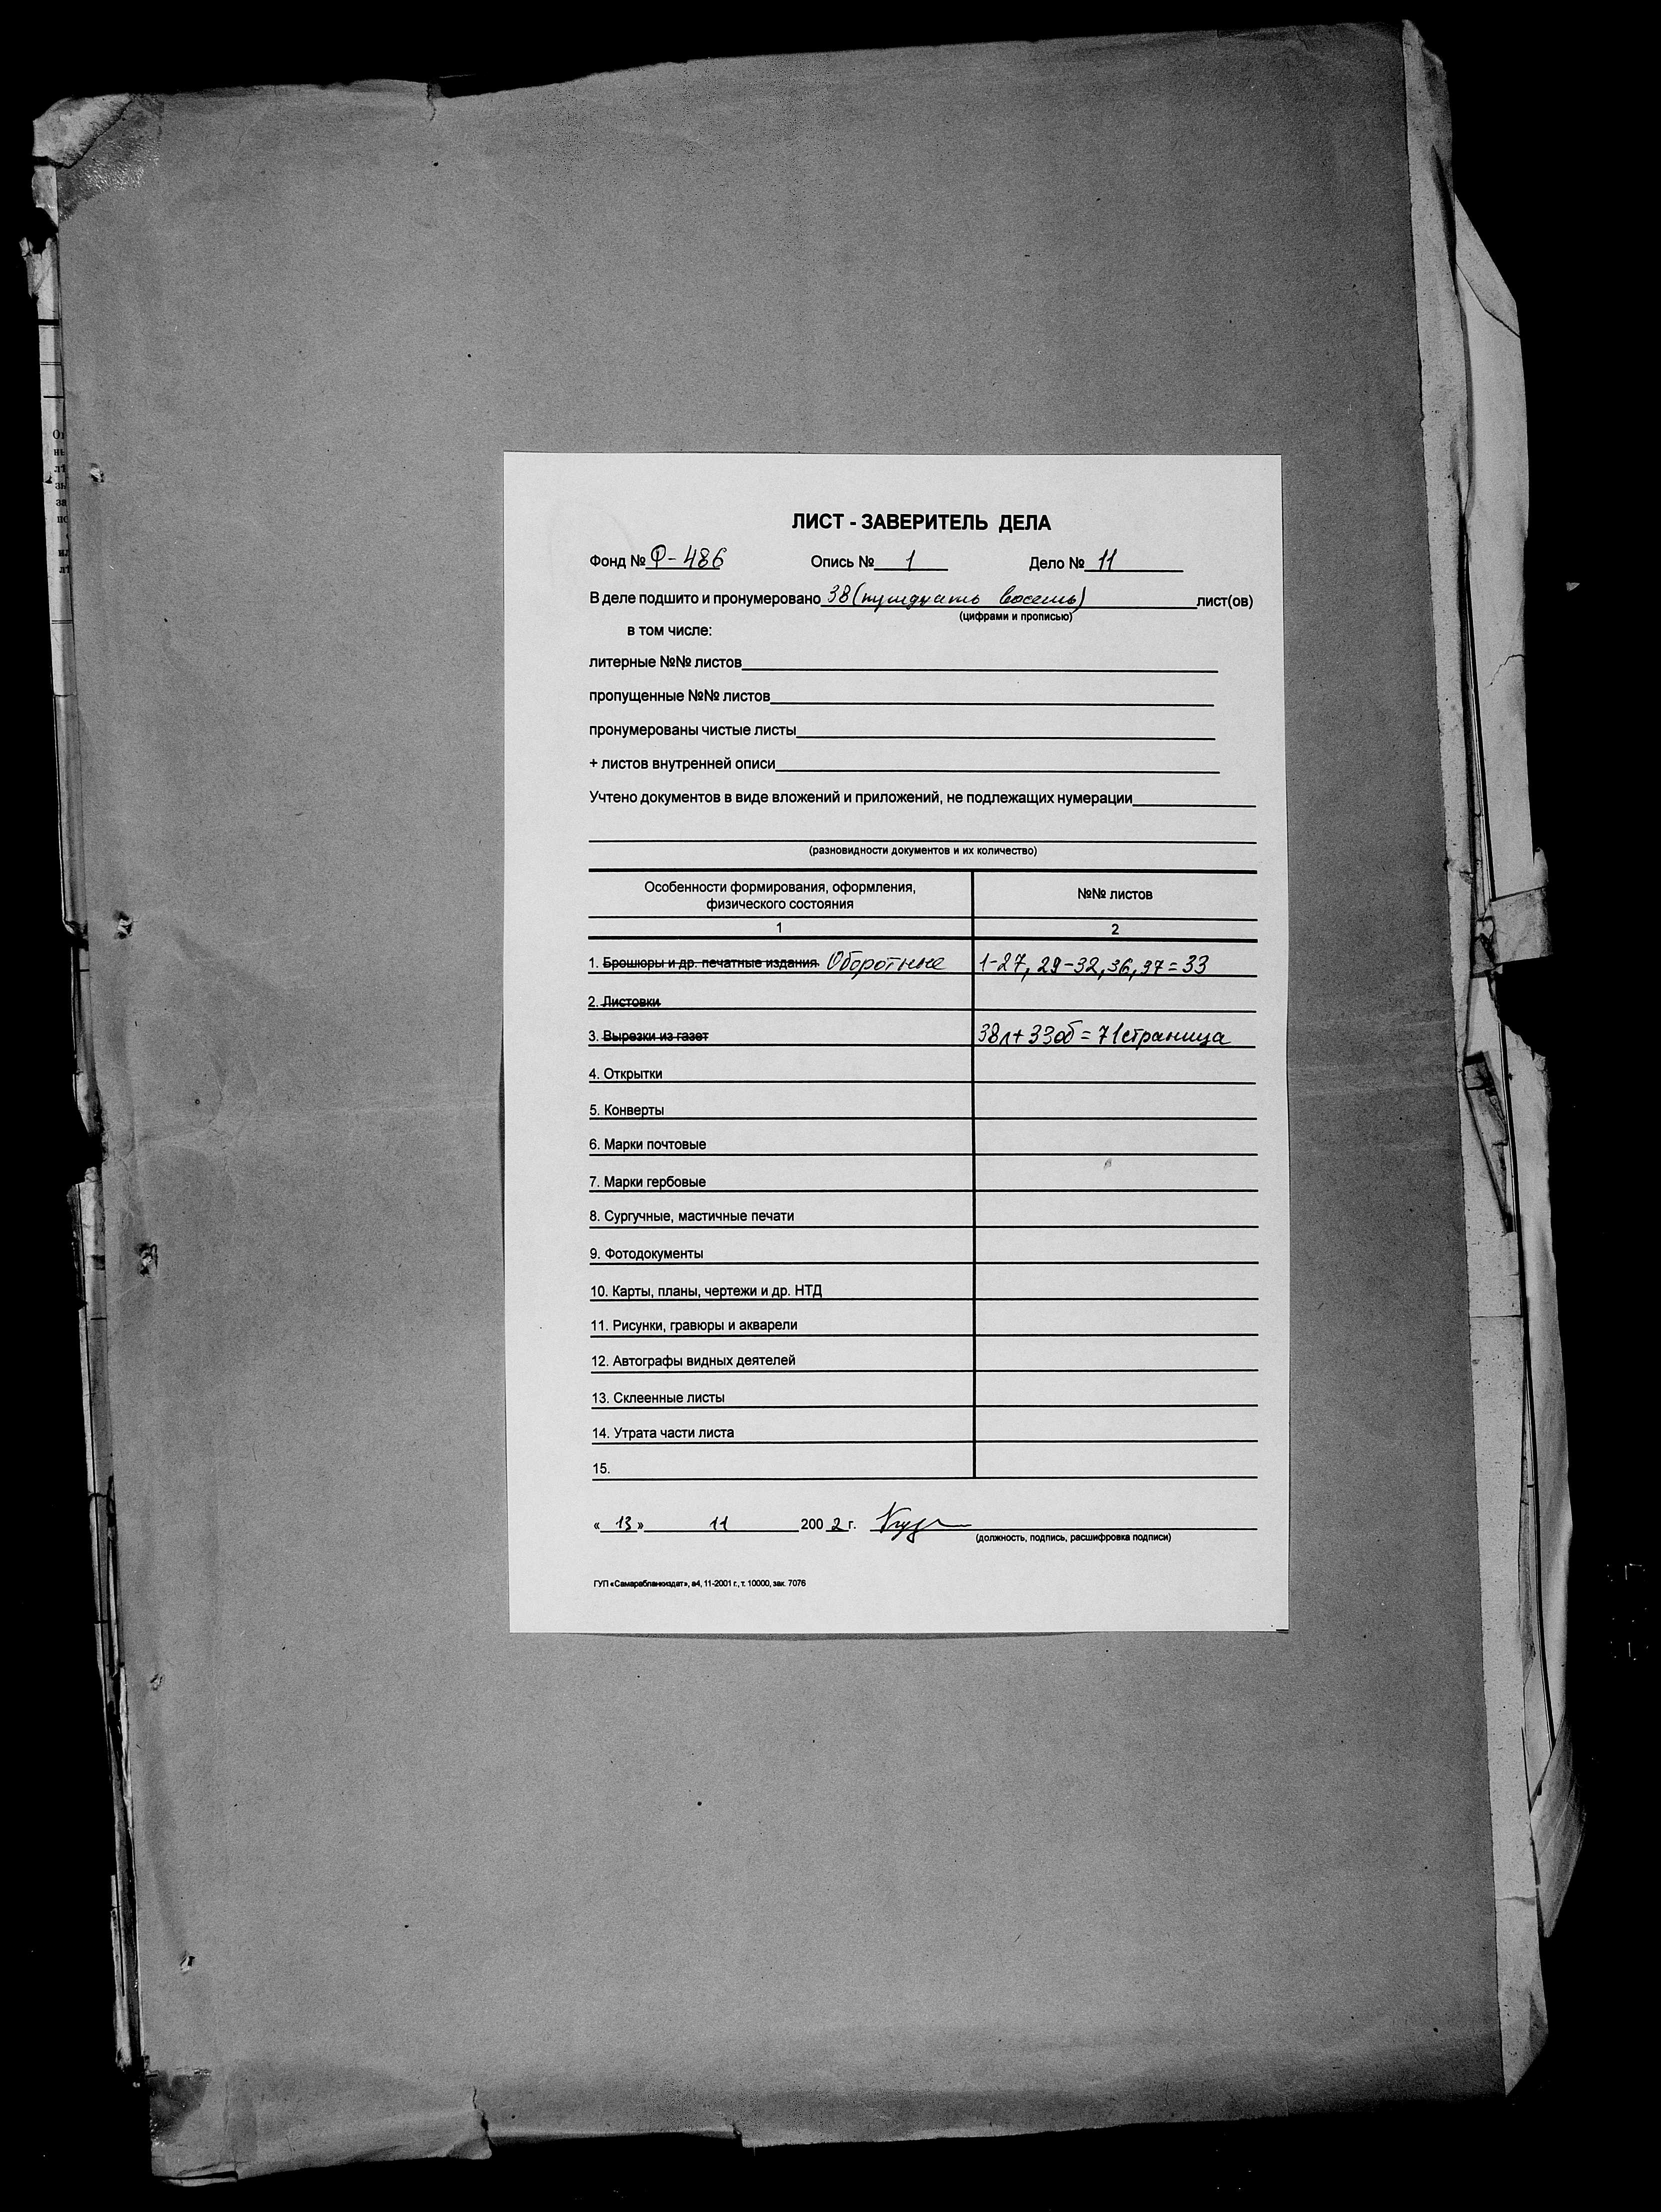 ЛИСТ - ЗАВЕРИТЕЛЬ ДЕЛА
Фонд № Ф-486 Опись № 1 Дело № 11
В деле подшито и пронумеровано 38 (тридцать восемь) лист(ов)
(цифрами и прописью)
в том числе:
литерные №№ листов
пропущенные №№ листов
пронумерованы чистые листы
+ листов внутренней описи
Учтено документов в виде вложений и приложений, не подлежащих нумерации
(разновидности документов и их количество)
Особенности формирования, оформления, физического состояния №№ листов
1 2
1. Брошюры и др. печатные издания. Оборотные 1-27, 29-32, 36, 37 = 33
2. Листовки
3. Вырезки из газет 38л + 33об = 71 страница
4. Открытки
5. Конверты
6. Марки почтовые
7. Марки гербовые
8. Сургучные, мастичные печати
9. Фотодокументы
10. Карты, планы, чертежи и др. НТД
11. Рисунки, гравюры и акварели
12. Автографы видных деятелей
13. Склеенные листы
14. Утрата части листа
15.
« 13 » 11 200 2 г.
(должность, подпись, расшифровка подписи)
ГУП «Самарабланкиздат», а4, 11-2001 г., т. 10000, зак. 7076